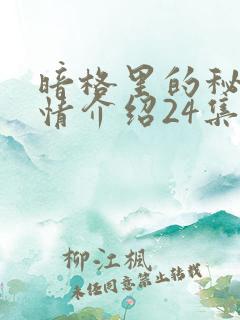 暗格里的秘
情介绍24集
柳江枫
未经同意禁止转载